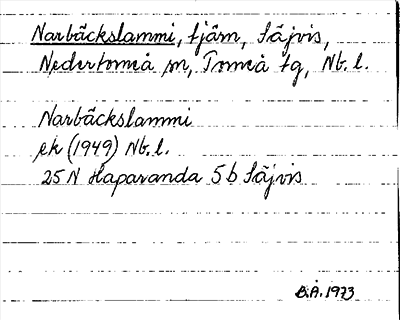 Narbäckslammi, tjärn, Säjvis,
Nedertorneå sn, Torneå tg, Nb. l.
Narbäckslammi
ek (1949) Nb. l.
25 N Haparanda 5 b Säjvis
B.Å. 1973